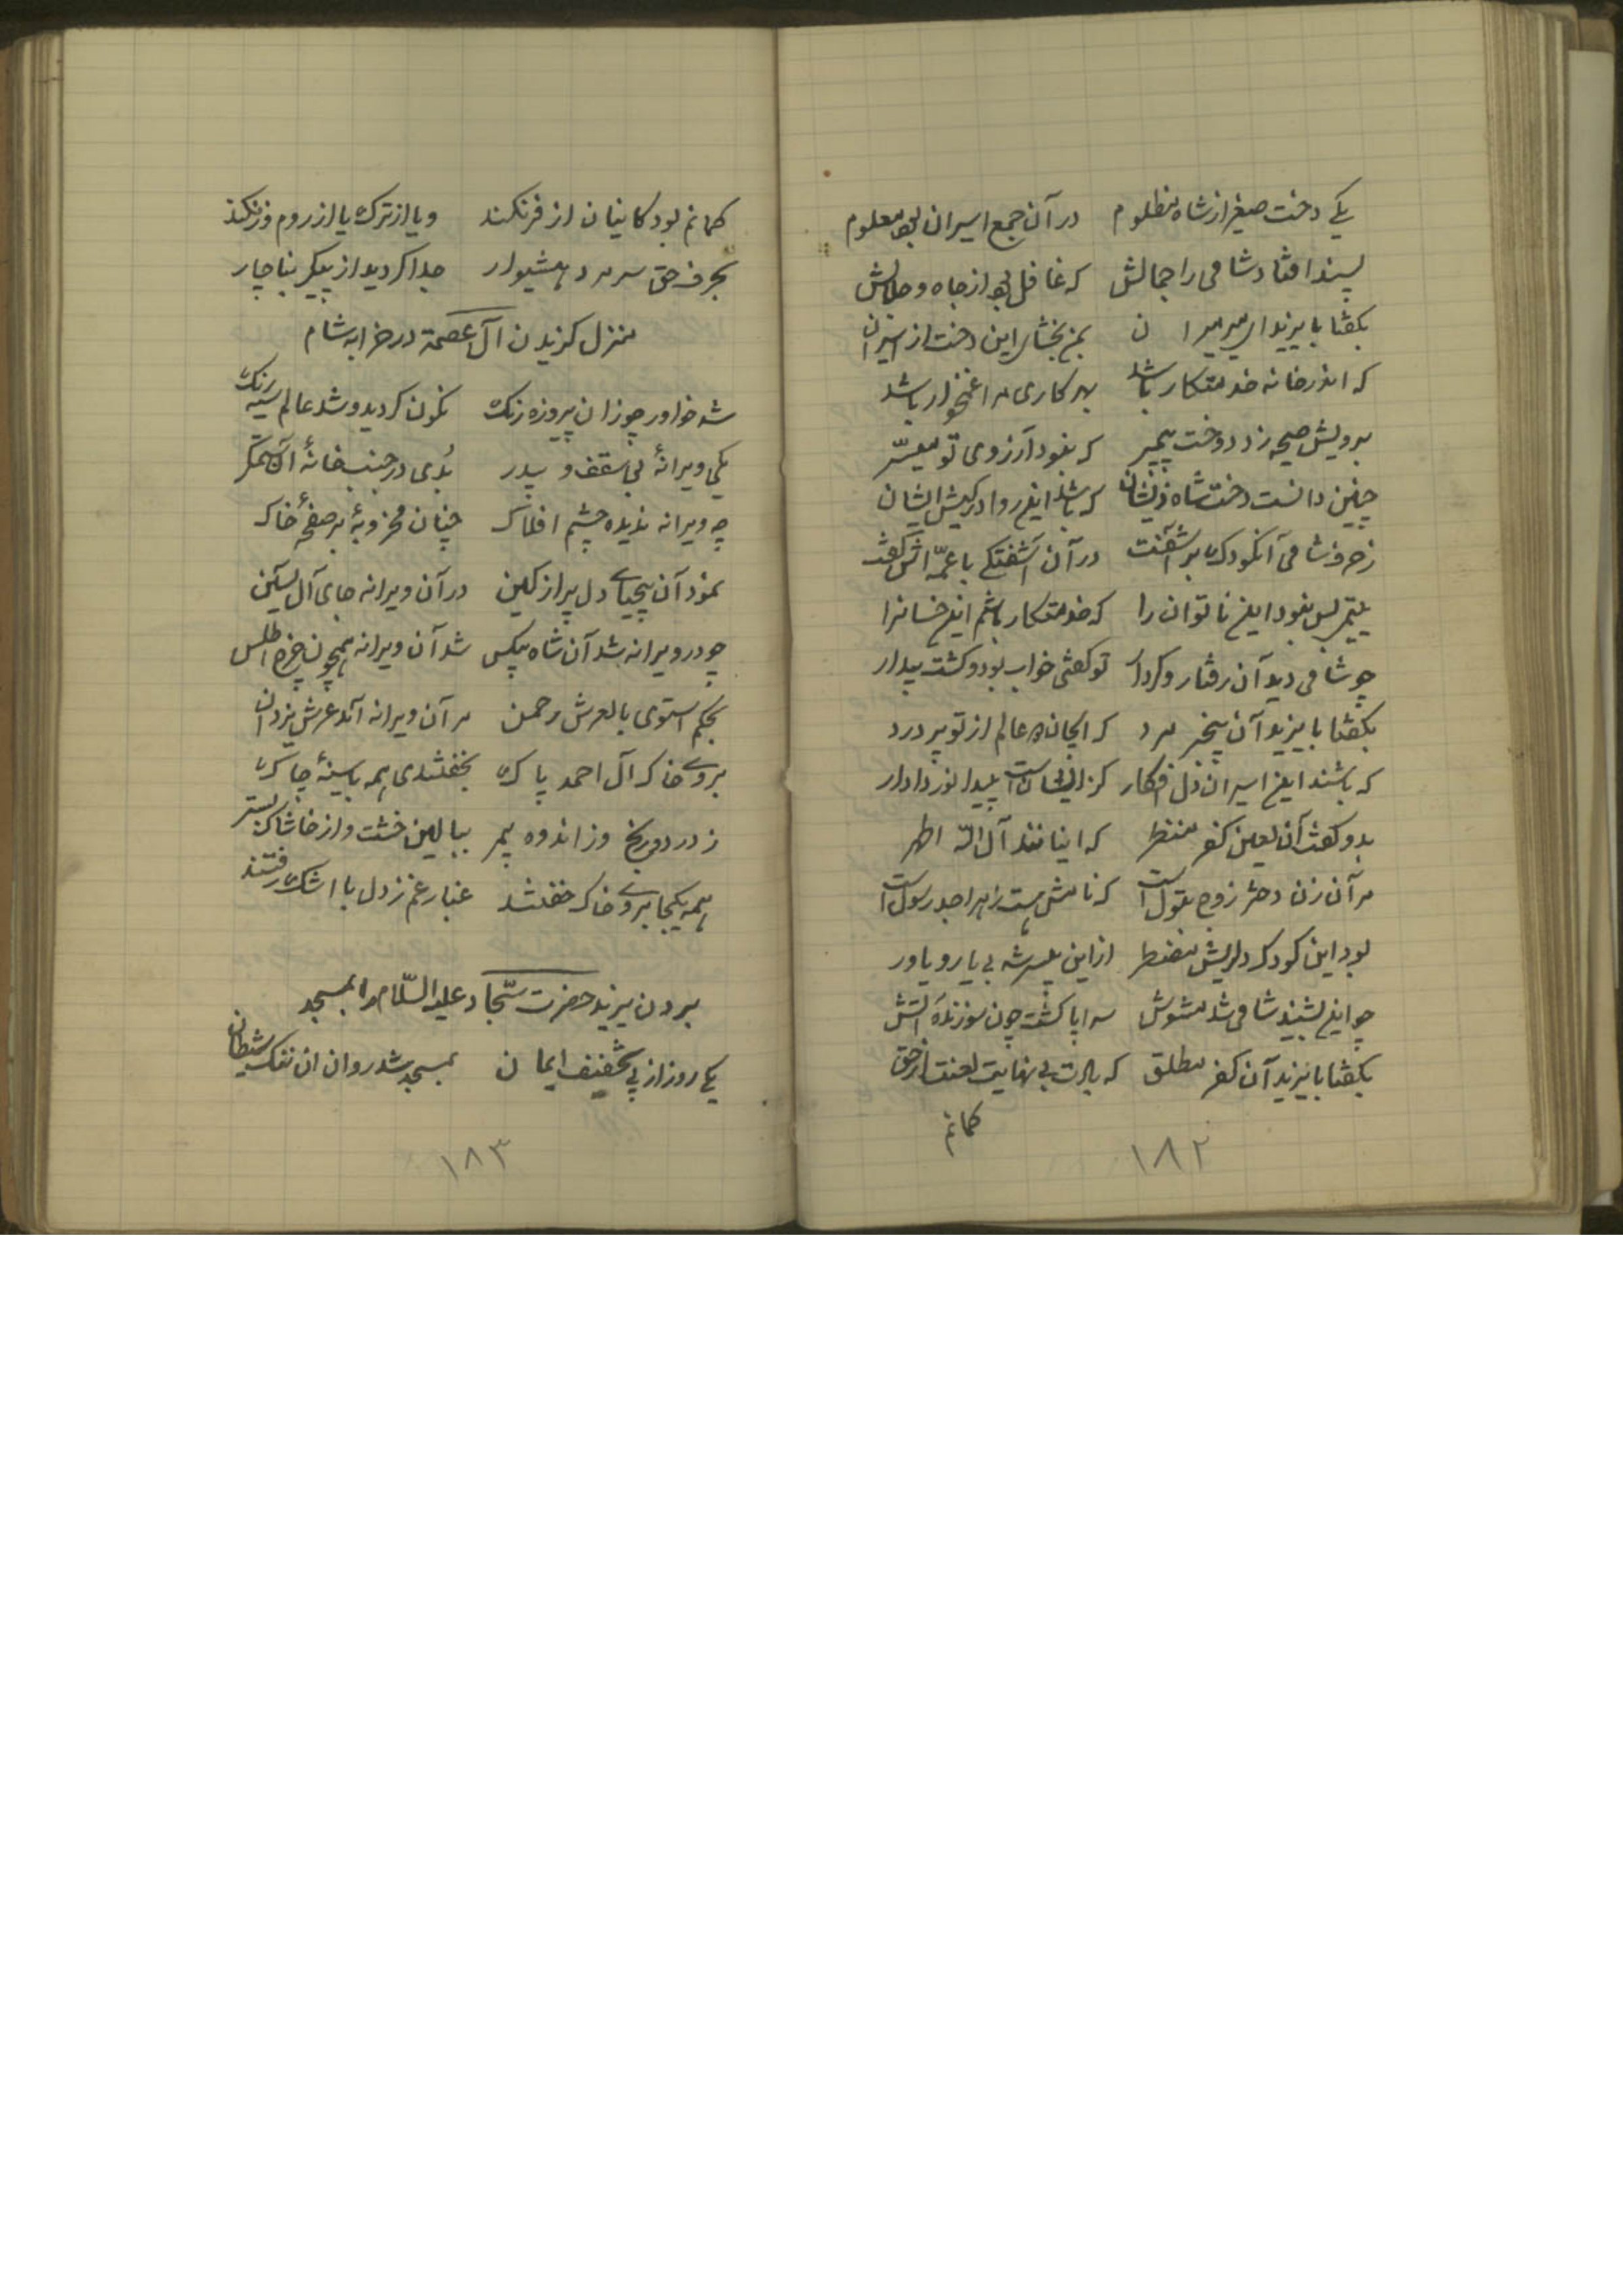 یکی دخت صغیر از شاه مظلوم در آن جمع اسیران بود معلوم
پسند افتاد شامی را جمالش که غافل بود از جاه و جلالش
بگفتا با یزید ای میر میران بمن بخشای این دخت از اسیران
که اندر خانه خدمتکار باشد بهر کاری مرا غمخوار باشد
برویش صیحه زد دخت پیمبر که نبود آرزوی تو میسّر
چنین دانست دخت شاه ذیشان که باشد اینم روا در کیش ایشان
ز حرف شامی آنکودک برآشفت در آن آشفتگی با عمّه اش گفت
یتیمی بس نبود این ناتوان را که خدمتکار باشم این خسانرا
چو شامی دید آن رفتار و کردار تو گفتی خواب بود و گشت بیدار
بگفتا با یزید آن بیخبر مرد که ایجان عالم از تو پر درد
که باشند این اسیران دل افکار کز ایشان است پیدا نور دادار
بدو گفت آن لعین کفر منظر که اینانند آل الله اطهر
مر آن زن دختر زوج بتول است که نامش هست زهرا جد رسول است
بود این کودک دلریش مضطر از این بی سر شه بی یار و یاور
چو این بشنید شامی شد مشوش سراپا گشت چون سوزنده آتش
بگفتا با یزید آن کفر مطلق که بادت بی نهایت لعنت از حق
گمانم
۱۸۲
گمانم بود کاینان از فرنگند و یا از ترک یا از روم و زنگند
بحرف حق سر مرد هشیوار جدا کردید از پیکر بناچار
منزل گزیدن آل عصمة در خرابه شام
شه خاور چو زان پیروزه رنگ نگون گردید و شد عالم سیه رنگ
یکی ویرانهٔ بی سقف و بیدر بُدی در جنب خانهٔ آن ستمگر
چه ویرانه ندیده چشم افلاک چنان مخروبهٔ بر صفحهٔ خاک
نمود آن بیحیای دل پر از کین در آن ویرانه جای آل یسین
چو در ویرانه شد آن شاه بیکس شد آن ویرانه همچون چرخ اطلس
بحکم استوی بالعرش رحمن مر آن ویرانه آمد عرش یزدان
بروی خاک آل احمد پاک بخفتندی همه با سینهٔ چاک
ز درد و رنج وز اندوه بیمر ببالین خشت و از خاشاک بستر
همه یکجا بروی خاک خفتند غبار غم ز دل با اشک رفتند
بردن یزید حضرت سجّاد علیه السّلام را بمسجد
یکی روز از پی تخفیف ایمان بمسجد شد روان آن ننگ شیطان
۱۸۳